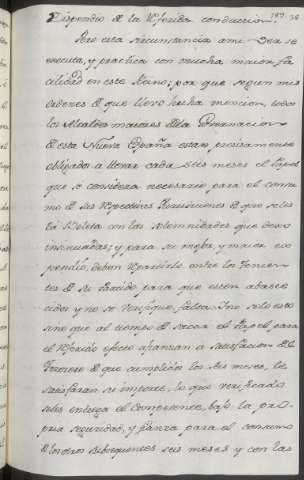 Dispendio de la Referida conduccion.
Pero esta circunstancia ami Ver se
executa, y practica con mucha maior fa
cilidad en este Reino, por que segun mis
ordenes de que llevo hecha mencion, todos
los Alcaldes maiores de la Governacion
de esta Nueva España estan precisamente
obligados a llevar cada seis meses el Papel
que se considera necesario para el consu
mo de sus Respectivas Jurisdiciones de que se les
da Boleta con las solemnidades que dexo
insinuadas; y para su mejor, y maior ex
pendio, deben Repartirlo entre los Thenien
tes de su Partido para que esten abaste
cidos y no se verifique falta: Y no solo esto
sino que al tiempo de sacar el Papel para
el Referido efecto afianzan a satisfacion del
Thesorero de que cumplidos los seis meses, le
satisfaran su importe, lo que verificado
se les entrega el competente, bajo la pro
pria seguridad, y fianza para el consumo
de los otros subsequentes seis meses y con las